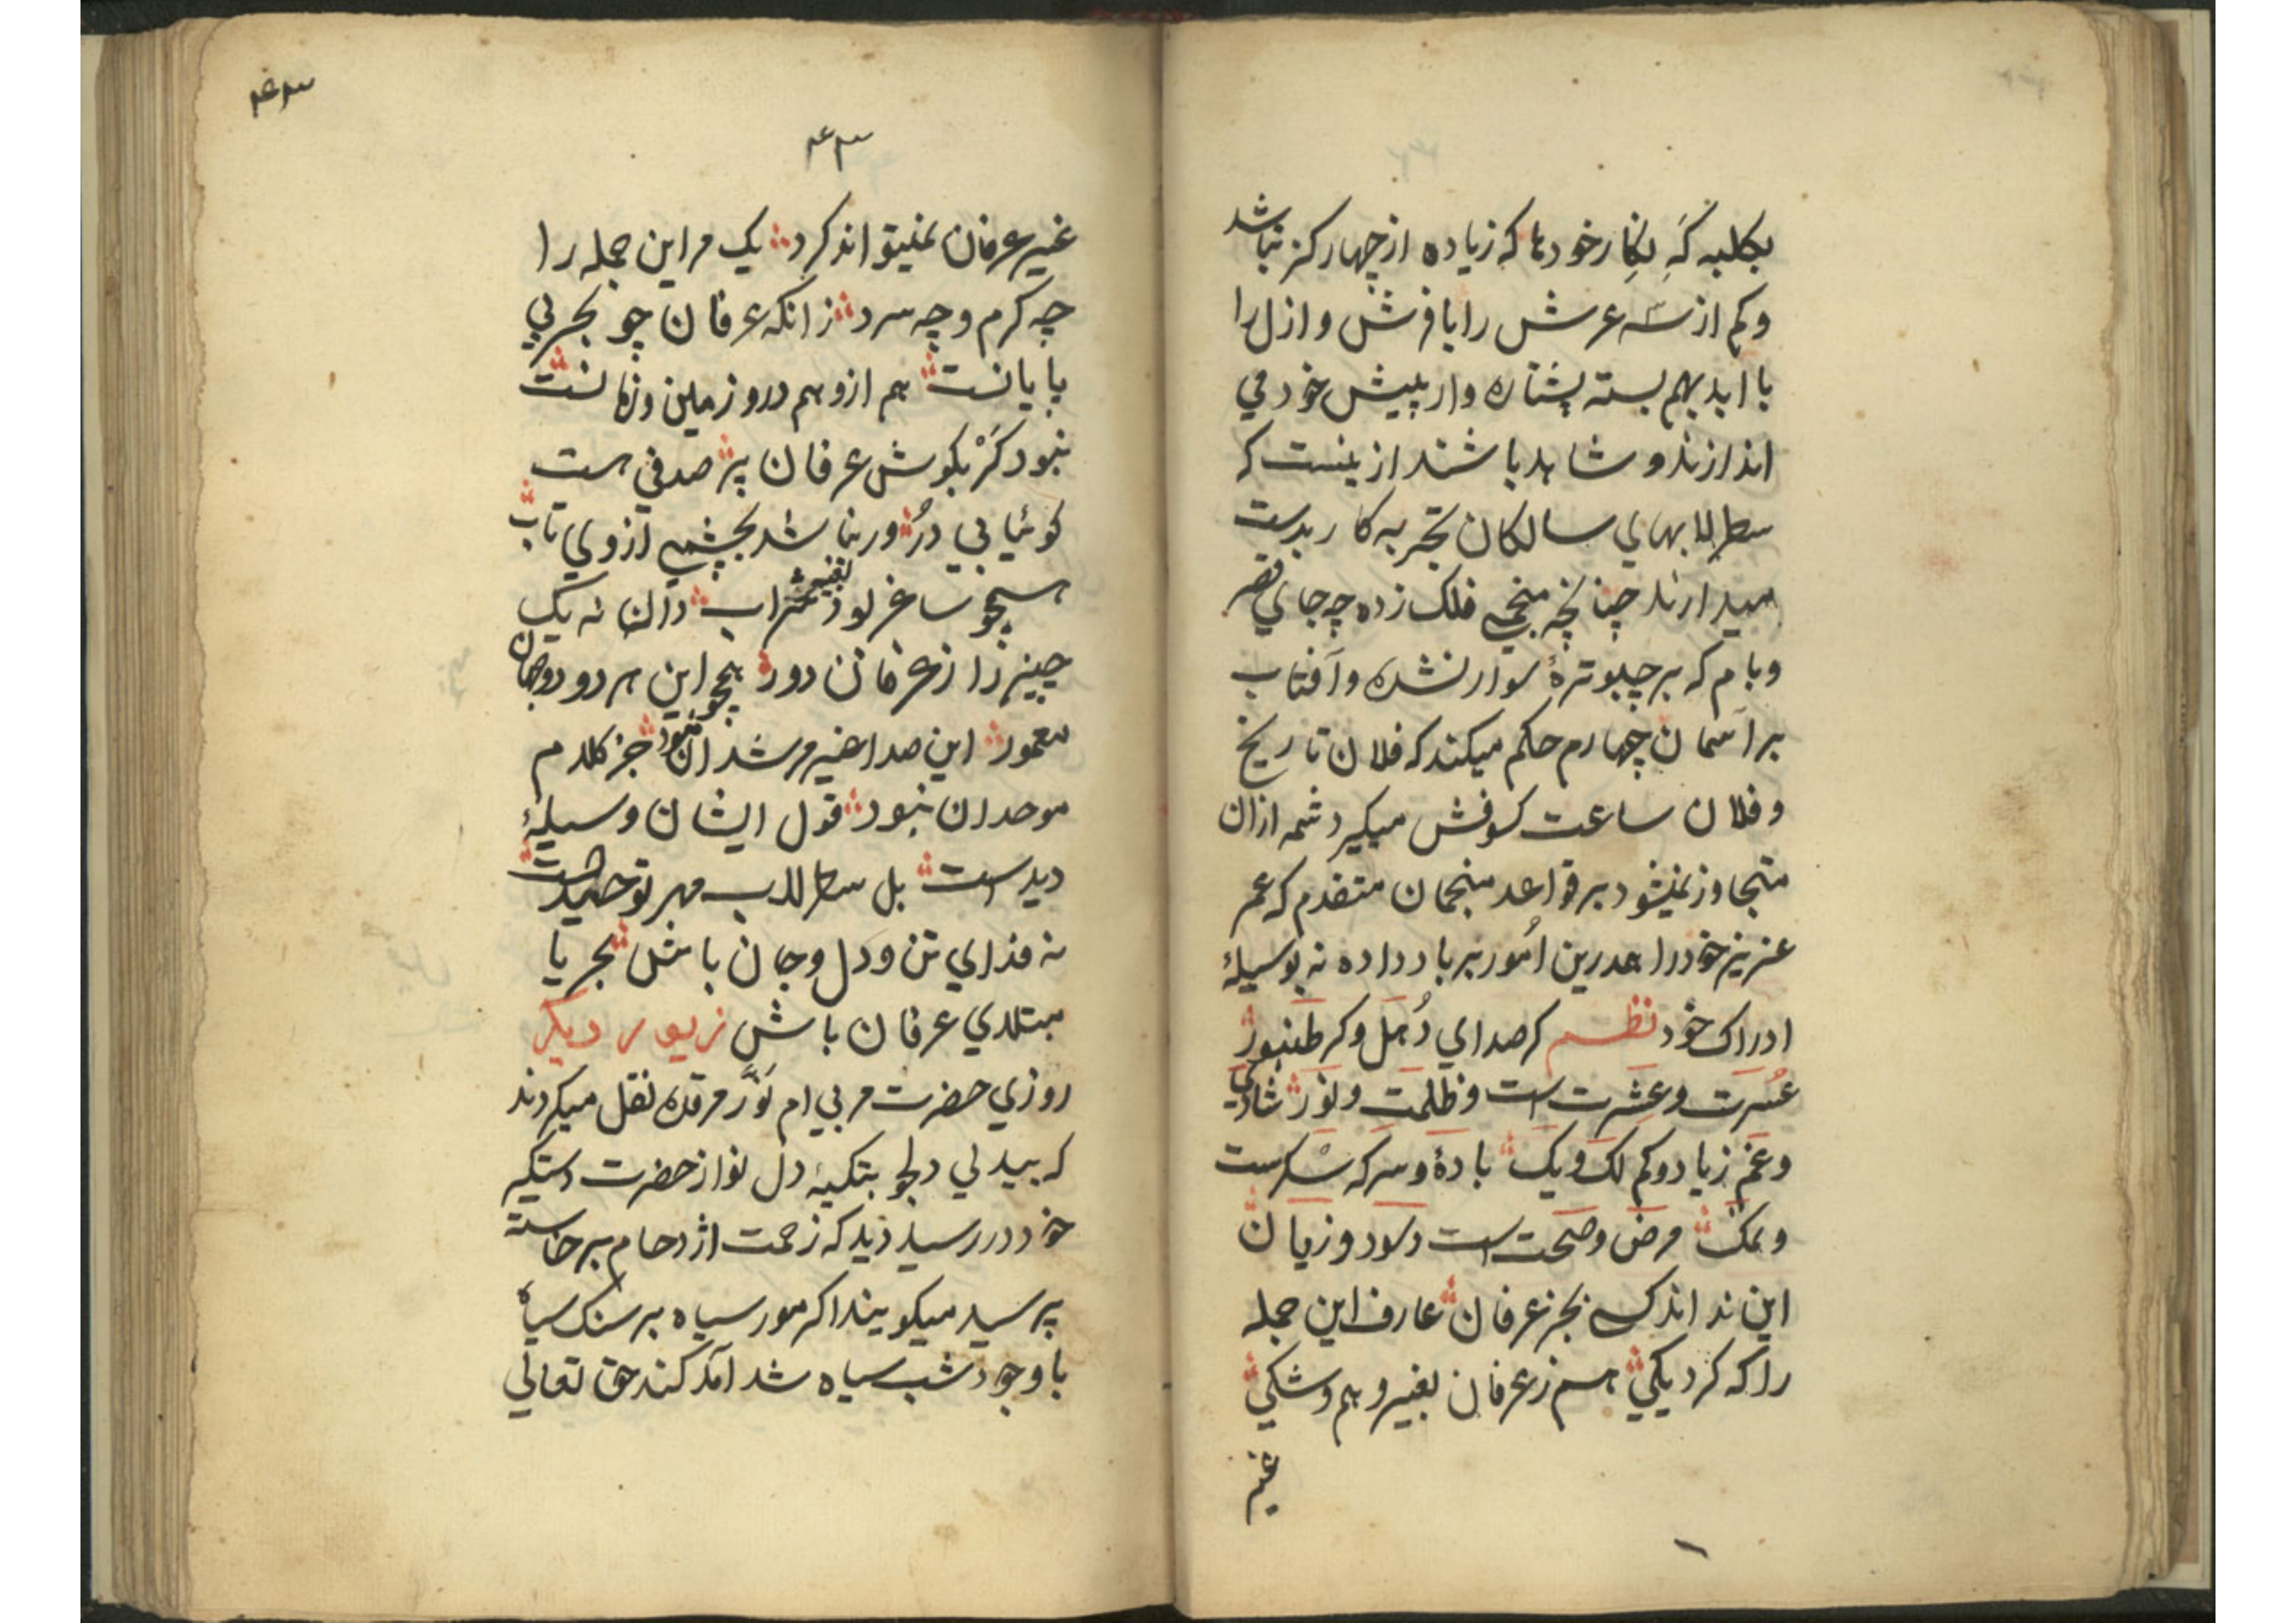 بکلبه که بکار خودها که زیاده از چهار کز نباشد
و کم از سه عرش را با فرش و ازل را
با ابد بهم بسته پشتاره وار پیش خود می
اندازند و شاهد باشند ازینست که
سطرلابهای سالکان تجربه کار بدست
میدارند چنانچه منجمی فلک زده چه جای قصر
و بام که بر چبوترهٔ سوار نشده و آفتاب
بر آسمان چهارم حکم میکند که فلان تاریخ
و فلان ساعت کسوفش میکیرد شمه ازان
متجاوز نمیشود بر قواعد منجمان متقدم که عمر
عزیز خود را درین امور برباد داده نه بوسیلهٔ
ادراک خود نظم کر صدای دهل و کر طنبور
عسرت و عشرت است و ظلمت و نور شادی
و غم زیاد و کم لک و یک بادهٔ و سرکه شکرست
و نمک مرض و صحت است و سود و زیان
این نداند کسی بجز عرفان عارف این جمله
را که کرد یکی هم ز عرفان بغیر وهم و شکی
غیر
۴۳
۴۳
غیر عرفان نمیتواند کرد یک مر این جمله را
چه کرم و چه سرد زانکه عرفان چو بحر بی
پایانست هم ازو هم درو زمین و زمانست
نبود کر بکوش عرفان پر صدفی هست
کوئیا بی در ور نباشد بچشمی ازوی تاب
همچو ساغر بود بغیر شراب دان نه یک
چیز را ز عرفان دور همچو این هر دو دو جهان
معمور این صدا غیر مرشدان نبود جز کلام
موحدان نبود قول ایشان وسیلهٔ
دید است بل سطرلاب مهر توحیدست
نه فدای تن و دل و جان باش بحر یا
مبتلای عرفان باش زیور دیکر
روزی حضرت مربی ام نور مرقده نقل میکردند
که بیدلی دلجو بتکیهٔ دل نواز حضرت دستکیر
خود در رسید دید که زحمت اژدحام برخاسته
پرسید میکویند اکر مور سیاه بر سنک سیاه
با وجود شب سیاه شد آمد کند حق تعالی